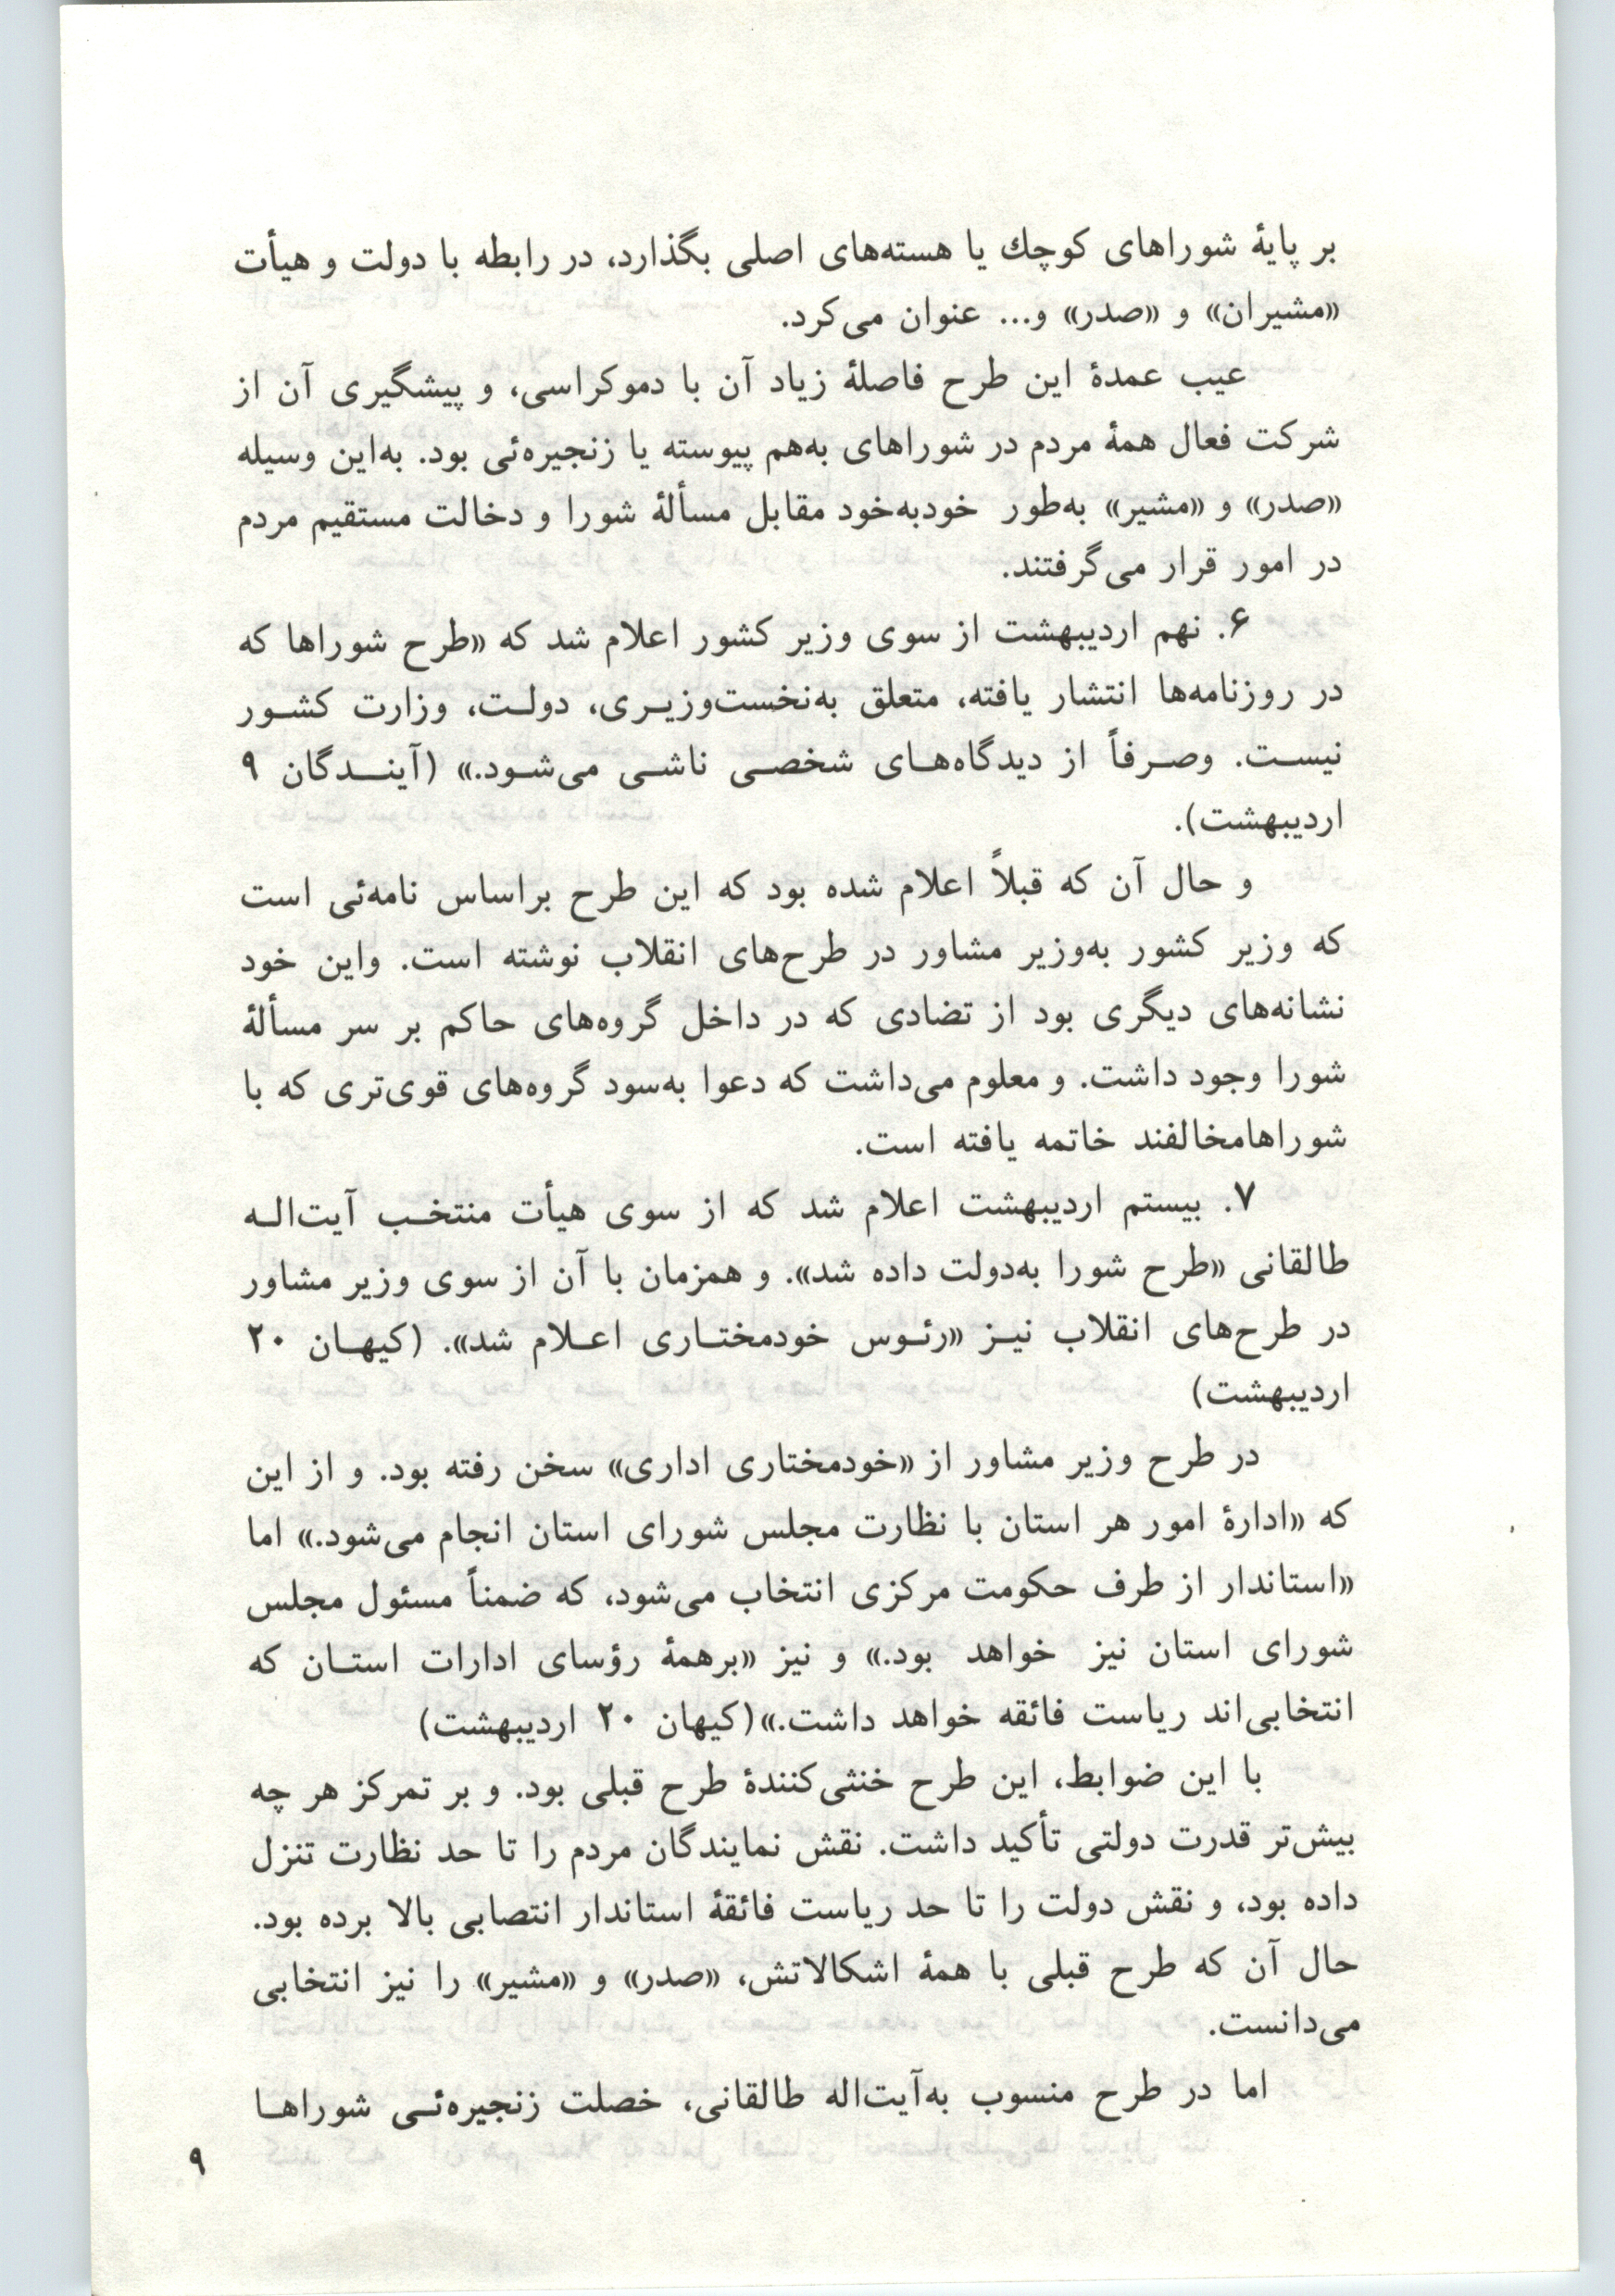 بر پایهٔ شوراهای کوچك یا هسته‌های اصلی بگذارد، در رابطه با دولت و هیأت
«مشیران» و «صدر» و... عنوان می‌کرد.
عیب عمدهٔ این طرح فاصلهٔ زیاد آن با دموکراسی، و پیشگیری آن از
شرکت فعال همهٔ مردم در شوراهای به‌هم پیوسته یا زنجیره‌ئی بود. به‌این وسیله
«صدر» و «مشیر» به‌طور خودبه‌خود مقابل مسألهٔ شورا و دخالت مستقیم مردم
در امور قرار می‌گرفتند.
۶. نهم اردیبهشت از سوی وزیر کشور اعلام شد که «طرح شوراها که
در روزنامه‌ها انتشار یافته، متعلق به‌نخست‌وزیـری، دولـت، وزارت کشـور
نیسـت. وصـرفاً از دیدگاه‌هـای شخصـی ناشـی می‌شـود.» (آینــدگان ۹
اردیبهشت).
و حال آن که قبلاً اعلام شده بود که این طرح براساس نامه‌ئی است
که وزیر کشور به‌وزیر مشاور در طرح‌های انقلاب نوشته است. واین خود
نشانه‌های دیگری بود از تضادی که در داخل گروه‌های حاکم بر سر مسألهٔ
شورا وجود داشت. و معلوم می‌داشت که دعوا به‌سود گروه‌های قوی‌تری که با
شوراهامخالفند خاتمه یافته است.
۷. بیستم اردیبهشت اعلام شد که از سوی هیأت منتخـب آیت‌الـه
طالقانی «طرح شورا به‌دولت داده شد». و همزمان با آن از سوی وزیر مشاور
در طرح‌های انقلاب نیـز «رئـوس خودمختـاری اعـلام شد». (کیهـان ۲۰
اردیبهشت)
در طرح وزیر مشاور از «خودمختاری اداری» سخن رفته بود. و از این
که «ادارهٔ امور هر استان با نظارت مجلس شورای استان انجام می‌شود.» اما
«استاندار از طرف حکومت مرکزی انتخاب می‌شود، که ضمناً مسئول مجلس
شورای استان نیز خواهد بود.» و نیز «برهمهٔ رؤسای ادارات استـان که
انتخابی‌اند ریاست فائقه خواهد داشت.»(کیهان ۲۰ اردیبهشت)
با این ضوابط، این طرح خنثی‌کنندهٔ طرح قبلی بود. و بر تمرکز هر چه
بیش‌تر قدرت دولتی تأکید داشت. نقش نمایندگان مردم را تا حد نظارت تنزل
داده بود، و نقش دولت را تا حد ریاست فائقهٔ استاندار انتصابی بالا برده بود.
حال آن که طرح قبلی با همهٔ اشکالاتش، «صدر» و «مشیر» را نیز انتخابی
می‌دانست.
اما در طرح منسوب به‌آیت‌اله طالقانی، خصلت زنجیره‌ئـی شوراهـا
۹